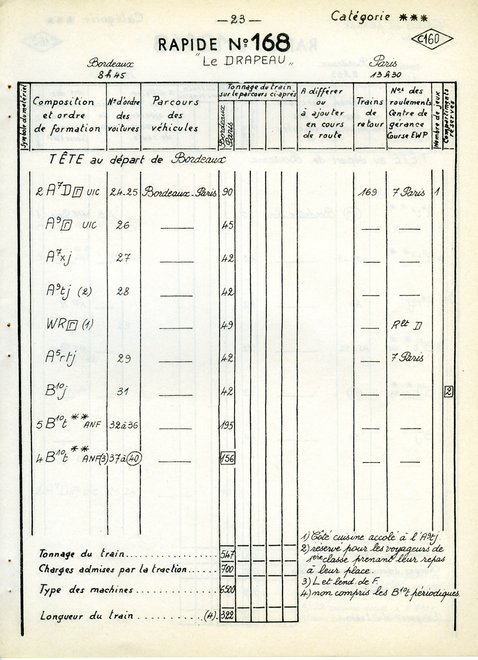 —23—
Catégorie ***
RAPIDE Nº 168
C160
"LE DRAPEAU"
Bordeaux
8h45
Paris
13h30
Symbole du matériel
Composition et ordre de formation
Nºs d'ordre des voitures
Parcours des véhicules
Tonnage du train sur le parcours ci-après
Bordeaux Paris
A différer ou à ajouter en cours de route
Trains de retour
Nºs des roulements Centre de gérance Course EWP
Nombre de jeux
Compartiments réservés
TÊTE au départ de Bordeaux
2 A7D r UIC 24.25 Bordeaux-Paris 90 169 7 Paris 1
A9 r UIC 26 —— 45 —— ——
A7xj 27 —— 42 —— ——
A9tj (2) 28 —— 42 —— ——
WR r (1) —— 49 —— Rlt D
A5rtj 29 —— 42 —— 7 Paris
B10j 31 —— 42 —— —— 2
5 B10t ** ANF 32à36 —— 195 —— ——
4 B10t ** ANF(3) 37à40 —— 156 —— ——
Tonnage du train.............. 547
Charges admises par la traction...... 700
Type des machines............ 6500
Longueur du train .......... (4). 322
1) Côté cuisine accolé à l'A9tj
2) reservé pour les voyageurs de
1ère classe prenant leur repas
à leur place.
3) L et lend. de F.
4) non compris les B10t périodiques.